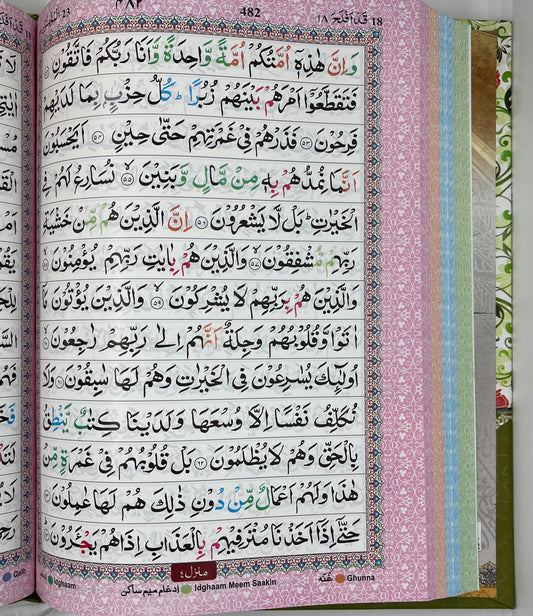 482
23 المؤمنون
قَدْ اَفْلَحَ ١٨ 18
وَاِنَّ هٰذِهٖۤ اُمَّتُكُمْ اُمَّةً وَّاحِدَةً وَّاَنَا رَبُّكُمْ فَاتَّقُوْنِ
فَتَقَطَّعُوْۤا اَمْرَهُمْ بَيْنَهُمْ زُبُرًاؕ كُلُّ حِزْبٍۭ بِمَا لَدَيْهِمْ
فَرِحُوْنَ ٥٣ فَذَرْهُمْ فِيْ غَمْرَتِهِمْ حَتّٰى حِيْنٍ ٥٤ اَيَحْسَبُوْنَ
اَنَّمَا نُمِدُّهُمْ بِهٖ مِنْ مَّالٍ وَّبَنِيْنَ ٥٥ۙ نُسَارِعُ لَهُمْ فِي
الْخَيْرٰتِؕ بَلْ لَّا يَشْعُرُوْنَ ٥٦ اِنَّ الَّذِيْنَ هُمْ مِّنْ خَشْيَةِ
رَبِّهِمْ مُّشْفِقُوْنَ ٥٧ۙ وَالَّذِيْنَ هُمْ بِاٰيٰتِ رَبِّهِمْ يُؤْمِنُوْنَ ٥٨ۙ
وَالَّذِيْنَ هُمْ بِرَبِّهِمْ لَا يُشْرِكُوْنَ ٥٩ۙ وَالَّذِيْنَ يُؤْتُوْنَ مَاۤ
اٰتَوْا وَّقُلُوْبُهُمْ وَجِلَةٌ اَنَّهُمْ اِلٰى رَبِّهِمْ رٰجِعُوْنَ ٦٠ۙ
اُولٰٓئِكَ يُسٰرِعُوْنَ فِي الْخَيْرٰتِ وَهُمْ لَهَا سٰبِقُوْنَ ٦١ وَلَا
نُكَلِّفُ نَفْسًا اِلَّا وُسْعَهَا وَلَدَيْنَا كِتٰبٌ يَّنْطِقُ
بِالْحَقِّ وَهُمْ لَا يُظْلَمُوْنَ ٦٢ بَلْ قُلُوْبُهُمْ فِيْ غَمْرَةٍ مِّنْ
هٰذَا وَلَهُمْ اَعْمَالٌ مِّنْ دُوْنِ ذٰلِكَ هُمْ لَهَا عٰمِلُوْنَ ٦٣
حَتّٰۤى اِذَاۤ اَخَذْنَا مُتْرَفِيْهِمْ بِالْعَذَابِ اِذَا هُمْ يَجْـَٔرُوْنَ ٦٤ؕ
منزل ٤
Qalb Idghaam ادغام میم ساکن Idghaam Meem Saakin غنّه Ghunna